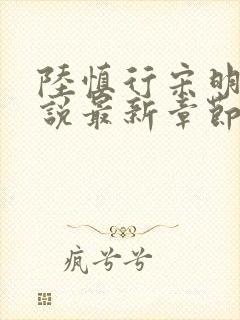 陸慎行宋明
說最新章節
疯兮兮